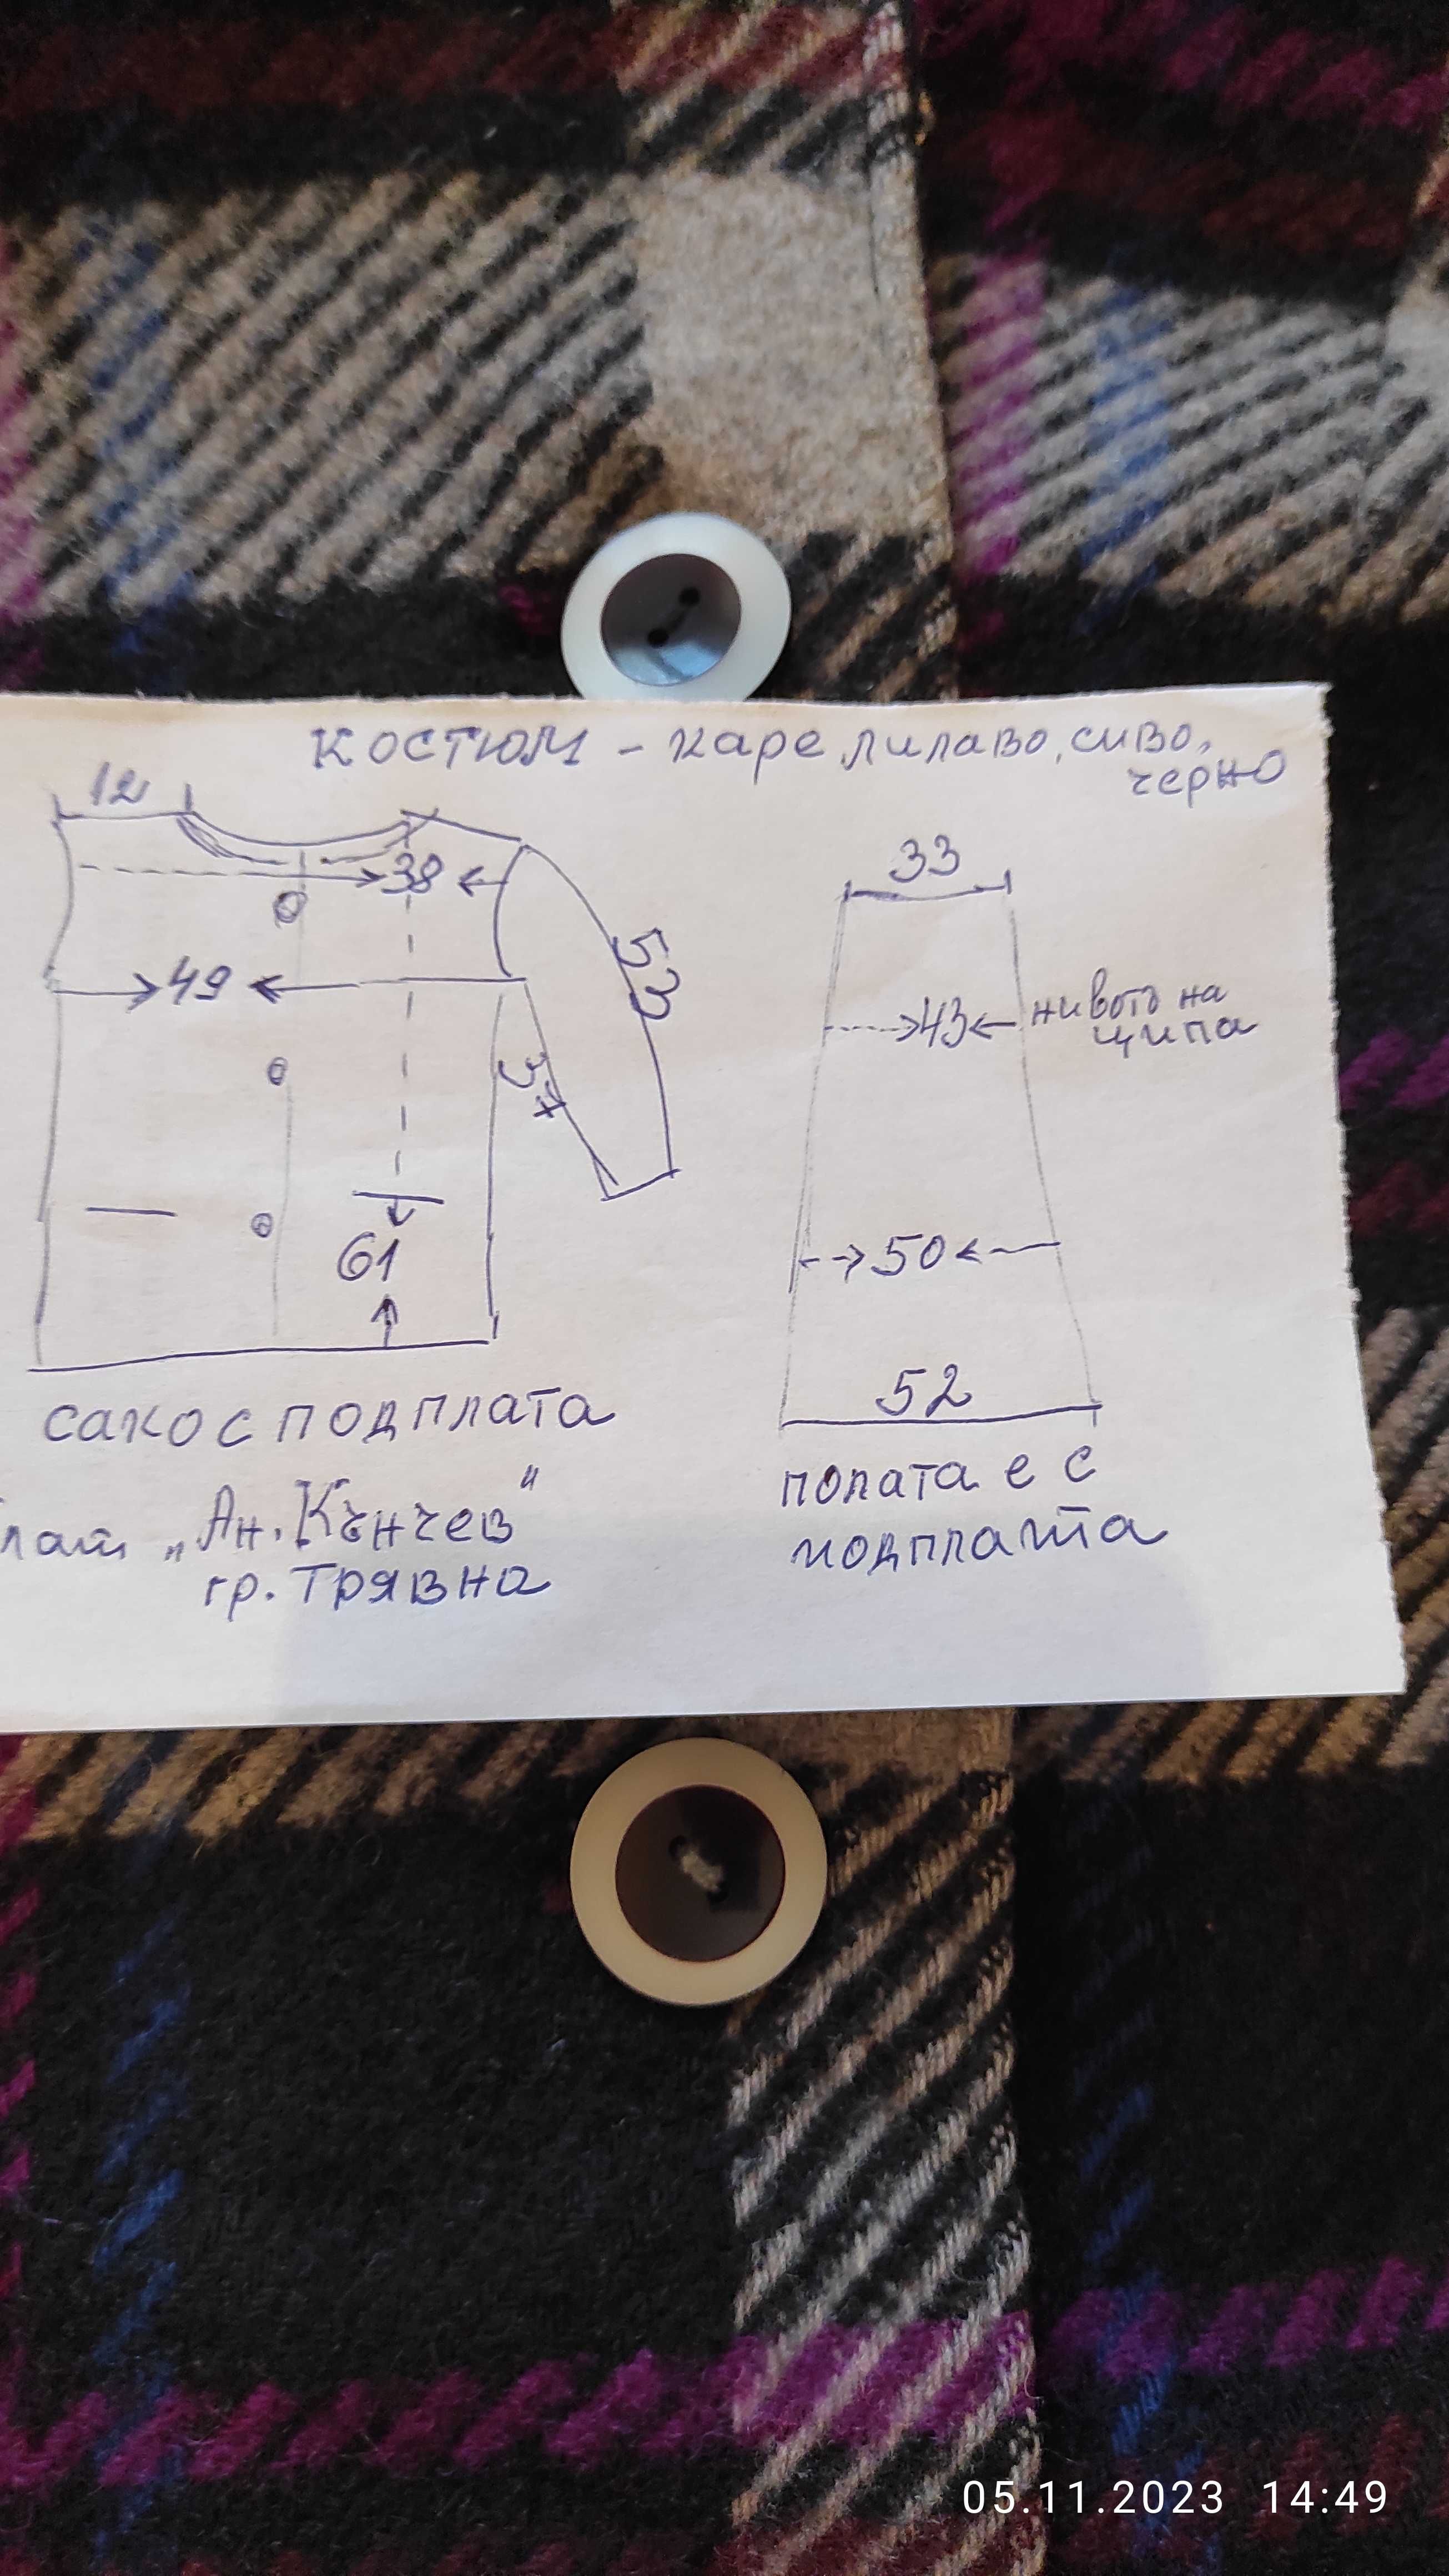 костюм - каре лилаво, сиво,
черно
12
38
49
53
37
61
сако с подплата
плат „Ан. Кънчев"
гр. Трявна
33
43 нивото на
ципа
50
52
полата е с
подплата
05.11.2023 14:49